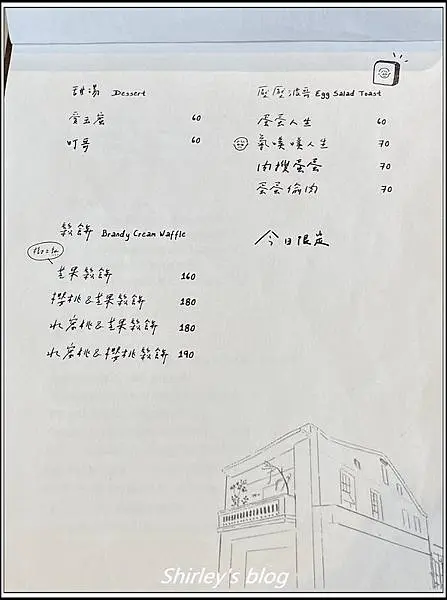 甜湯 Dessert
愛玉蜜 60
叮哥 60
鬆餅 Brandy Cream Waffle
芒果鬆餅 160
櫻桃&芒果鬆餅 180
水蜜桃&芒果鬆餅 180
水蜜桃&櫻桃鬆餅 190
壓壓波哥 Egg Salad Toast
蛋蛋人生 60
氣噗噗人生 70
肉搜蛋蛋 70
蛋蛋偷肉 70
今日限定
Shirley's blog